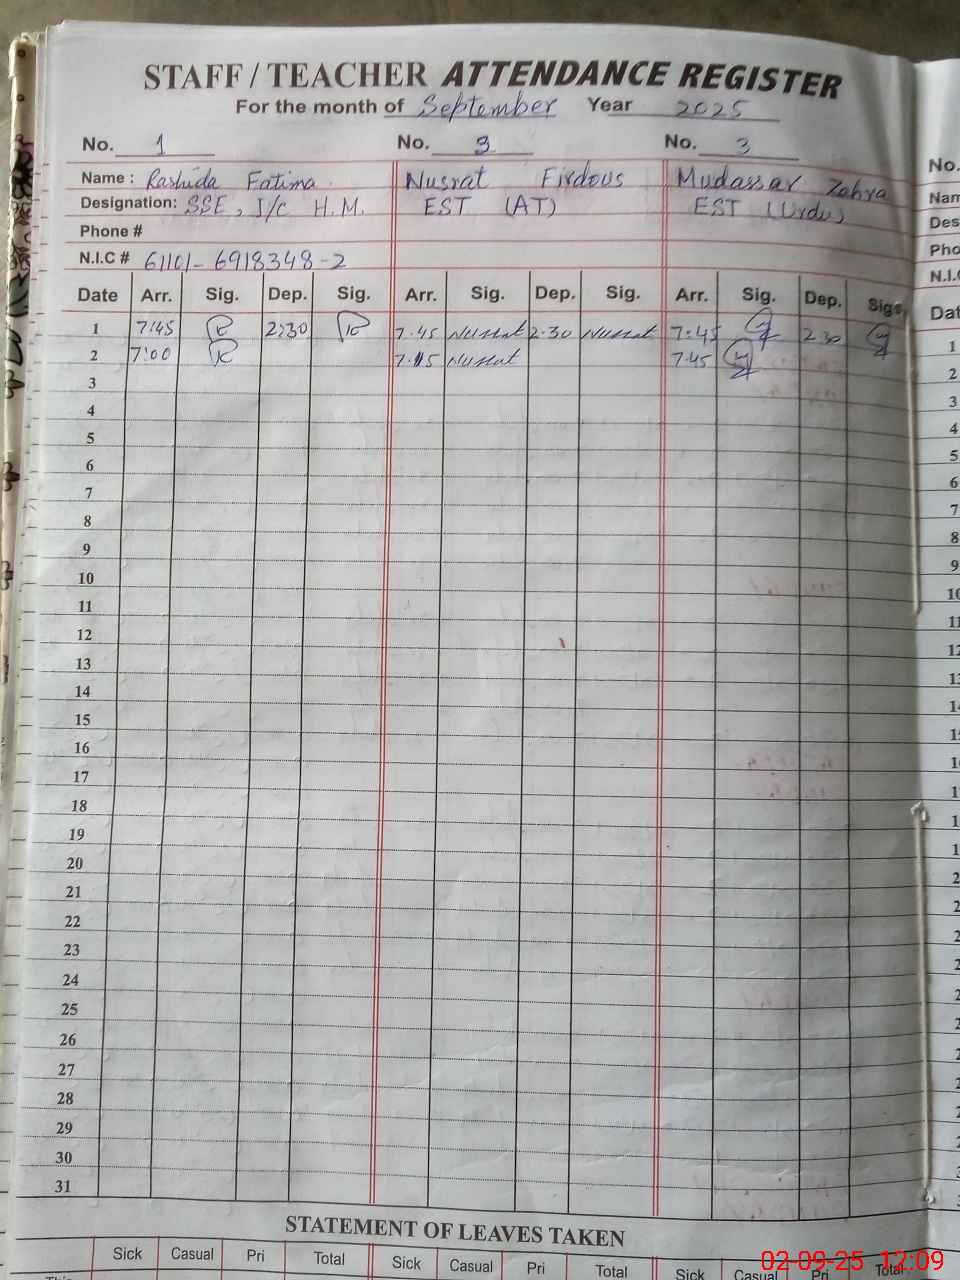 STAFF / TEACHER ATTENDANCE REGISTER
For the month of September Year 2025
No. 1 No. 3 No. 3
Name : Rashida Fatima Nusrat Firdous Mudassar Zahra
Designation: SSE, I/C H.M. EST (AT) EST (Urdu)
Phone #
N.I.C # 61101-6918348-2
Date Arr. Sig. Dep. Sig. Arr. Sig. Dep. Sig. Arr. Sig. Dep. Sig.
1 7:45 2:30 7.45 Nusrat 2.30 Nusrat 7:45 2:30
2 7:00 7.45 Nusrat 7.45
3
4
5
6
7
8
9
10
11
12
13
14
15
16
17
18
19
20
21
22
23
24
25
26
27
28
29
30
31
STATEMENT OF LEAVES TAKEN
Sick Casual Pri Total Sick Casual Pri Total Sick Casual Pri Total
No.
Nam
Des
Pho
N.I.C
Dat
1
2
3
4
5
6
7
8
9
10
11
02-09-25 12:09